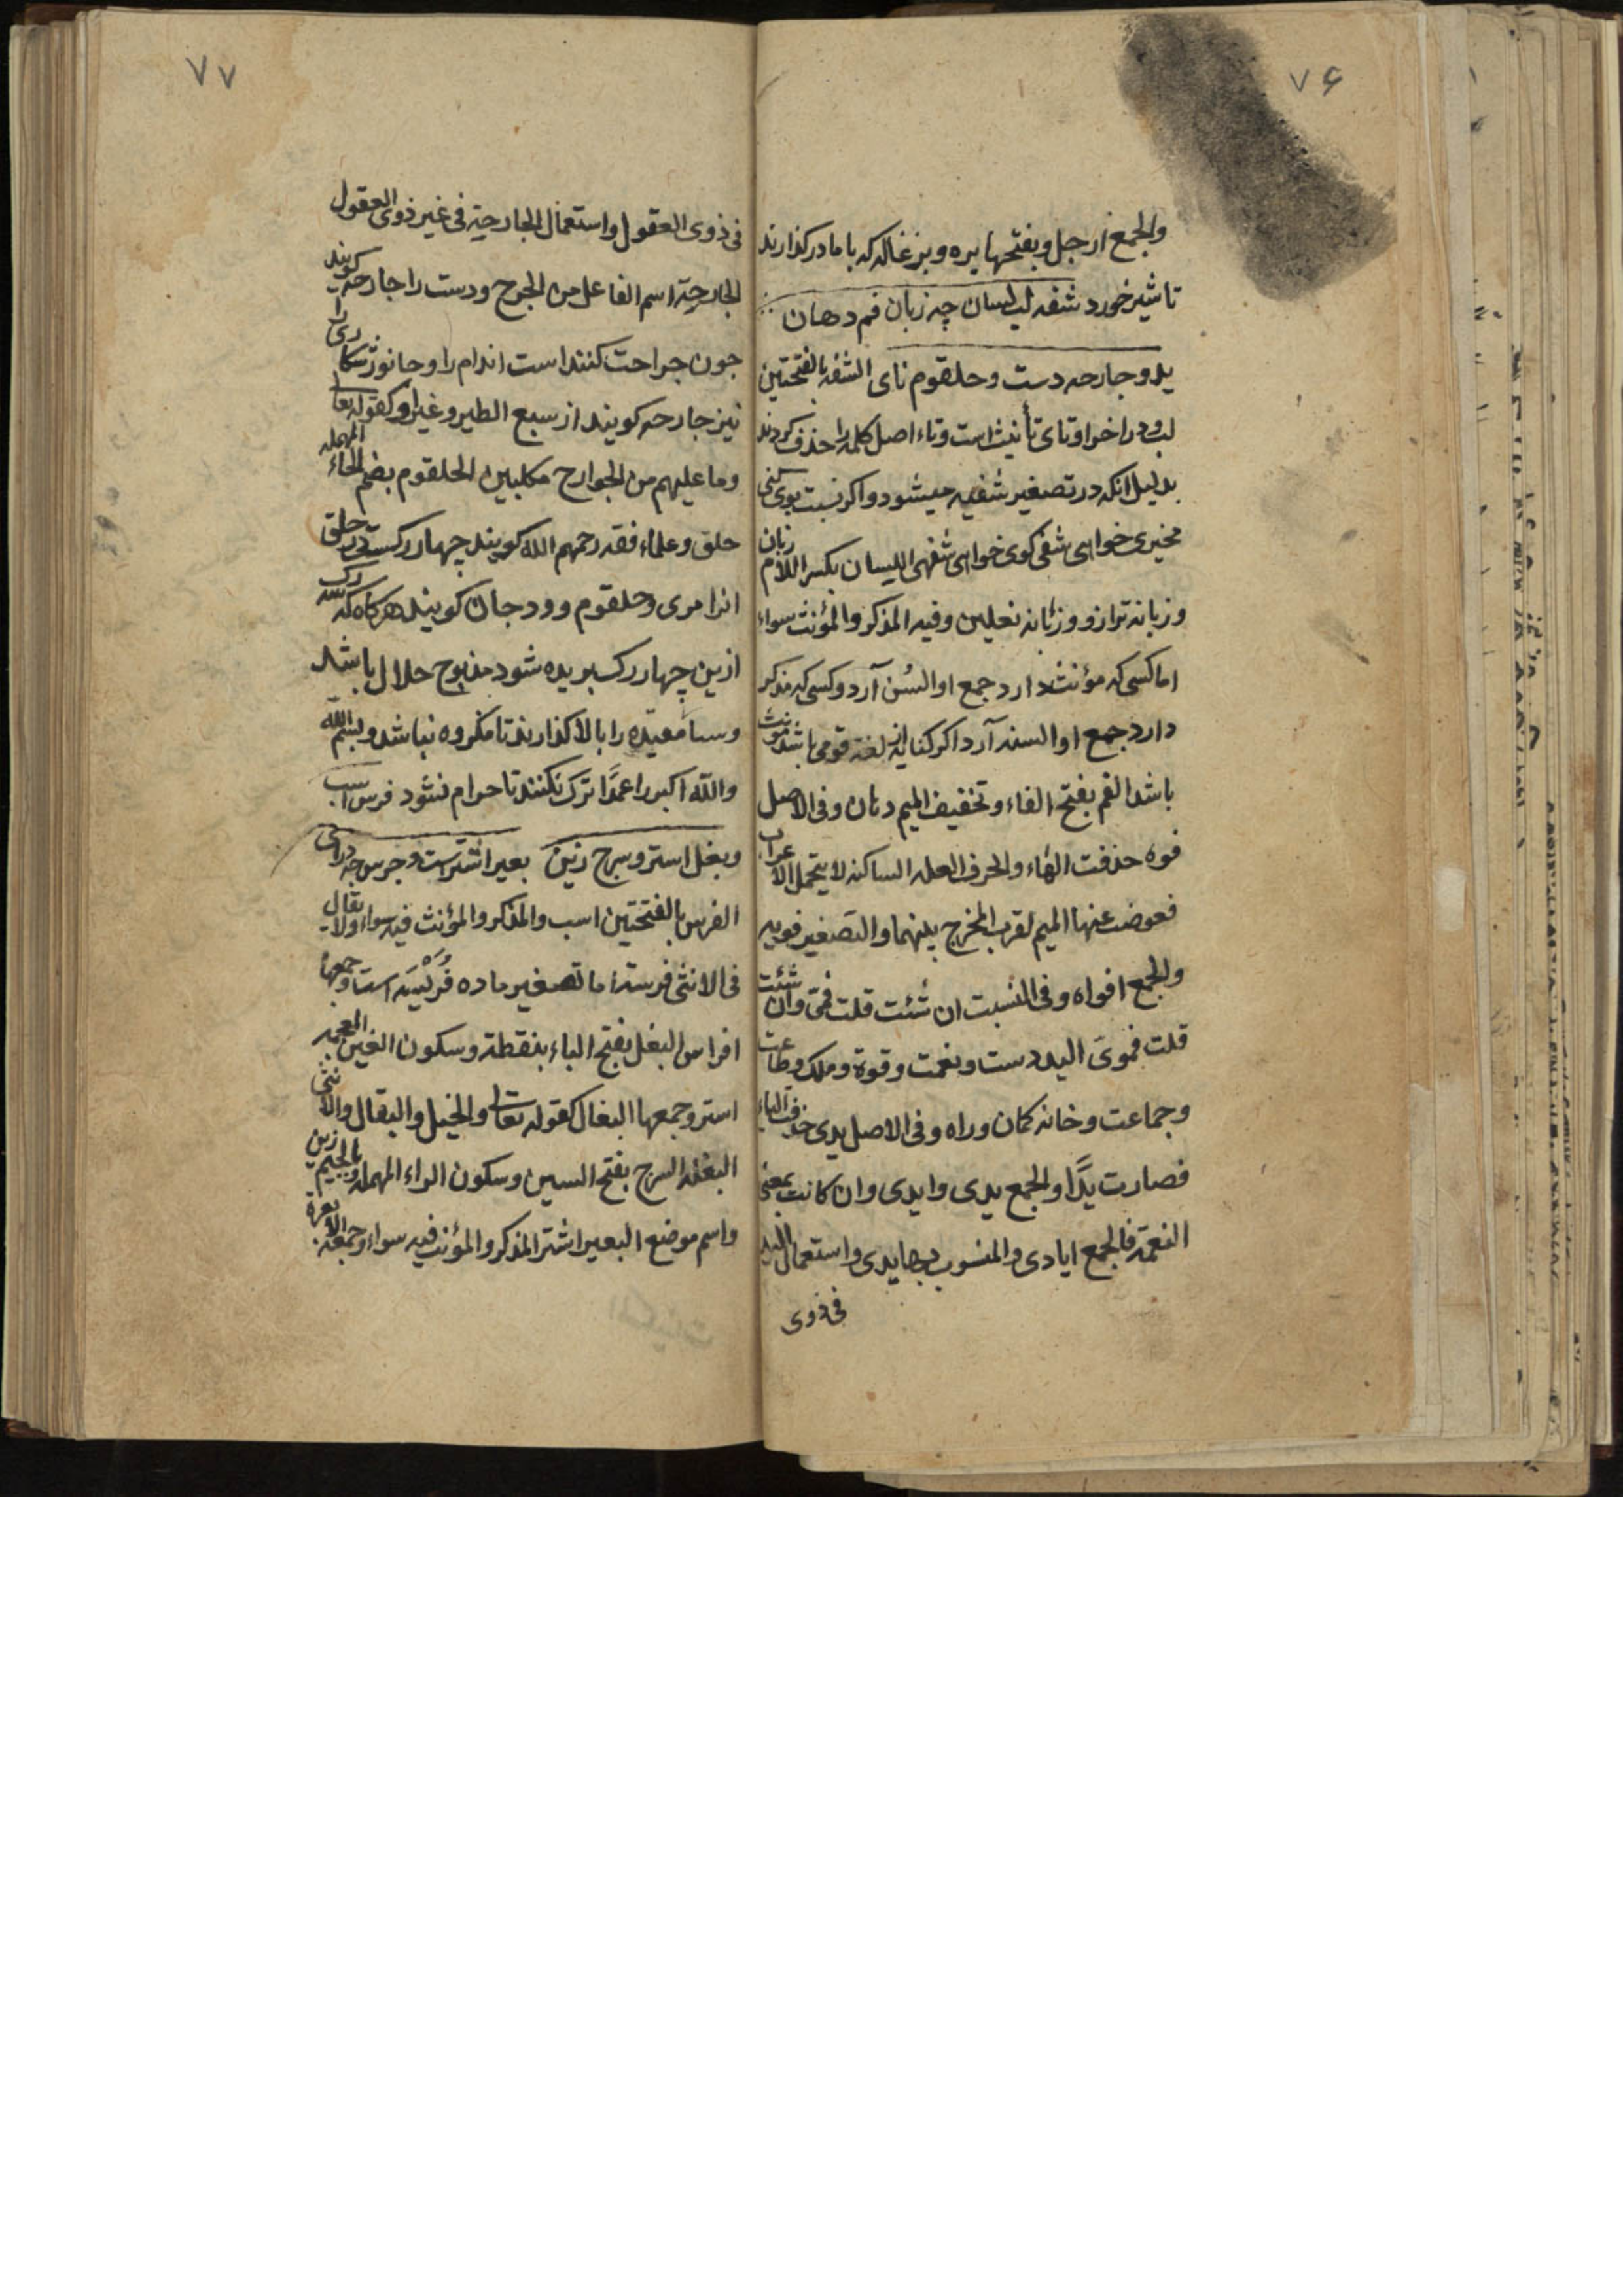 ۷۶
والجمع ارجل وبفتحها بره وبزغاله که با مادر کذارند
تا شیر خورد شفه لب لسان چه زبان فم دهان
ید و جارحه دست و حلقوم نای الشفه بالفتحتین
لب و در اخر او تای تأنیث است وتاء اصل کلمه را حذف کردند
بدلیل انکه در تصغیر شفیهه میشود و اکر نسبت بوی کنی
مخیری خواهی شفی کوی خواهی شفهی اللسان بکسر اللام زبان
و زبانه ترازو و زبانه نعلین وفیه المذکر والمؤنث سواء
اما کسی که مؤنث دارد جمع او السُن آرد و کسی که مذکر
دارد جمع او السنه آرد اکر کنایه از لغة قومی باشد مؤنث
باشد الفم بفتح الفاء وتخفیف المیم دهان وفی الاصل
فوه حذفت الهاء والحرف العله الساکنه لا یتحمل الاعراب
فعوضت عنها المیم لقرب المخرج بینهما والتصغیر فویه
والجمع افواه وفی النسبت ان شئت قلت فمّی وان شئت
قلت فموی الید دست و نعمت و قوة و ملک و طاعت
وجماعت و خانه کمان و راه وفی الاصل یدی حذف الیاء
فصارت یدًا والجمع یدی وایدی وان کانت بمعنی
النعمة فالجمع ایادی والمنسوب بها یدی واستعمال الید
فی ذوی
۷۷
فی ذوی العقول واستعمال الجارحة فی غیر ذوی العقول
الجارحة اسم الفاعل من الجرح ودست را جارحه کویند
جون جراحت کننده است اندام را وجانور شکاری را
نیز جارحه کویند از سبع الطیر وغیر او کقوله تعا
وما علیهم من الجوارح مکلبین الحلقوم بضم الحاء المهمله
حلق وعلماء فقه رحمهم الله کویند چهار رکست در حلق
انرا مری وحلقوم و ودجان کویند هرکاه که سه رک
ازین چهار رک بریده شود مذبوح حلال باشد
وسا معیده را بالا کذارند تا مکروه نباشد وبسم الله
والله اکبر را عمدًا ترک نکنند تا حرام نشود فرس اسب
وبغل استر وسرج زین بعیر اشتر است وجرس چه درای
الفرس بالفتحتین اسب والمذکر والمؤنث فیه سواء ولا یقال
فی الانثی فرسة اما تصغیر ماده فُرَیْسَه است وجمعها
افراس البغل بفتح الباء بنقطة وسکون الغین المعجمه
استر وجمعها البغال کقوله تعالی والخیل والبغال والانثی
البغله السرج بفتح السین وسکون الراء المهمله وبالجیم زین
واسم موضع البعیر اشتر المذکر والمؤنث فیه سواء وجمعه الابعرة